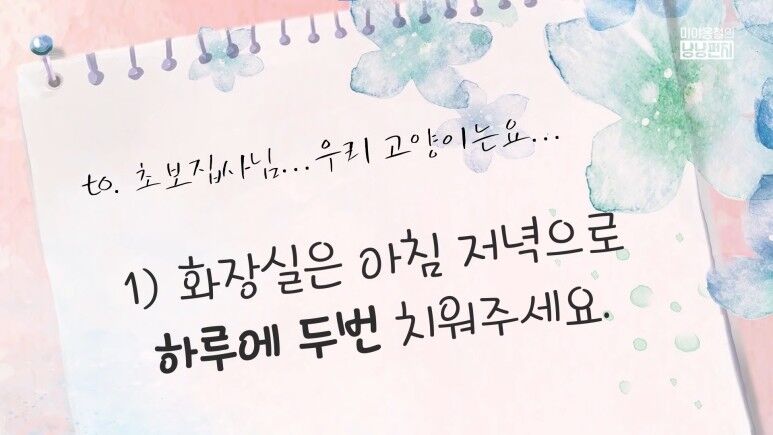 미야옹철의
냥냥펀치
to. 초보집사님...우리 고양이는요...
1) 화장실은 아침 저녁으로
하루에 두번 치워주세요.